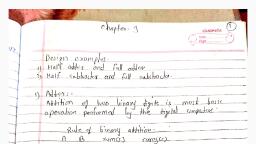 chapter. 3
CLASSMATE
Date
Page
Design examples:-
1) Half adder and full adder
2) Half subtractor and full subtractor
1) Adder:-
Addition of two binary digits is most basic
operation performed by the digital computer
Rule of binary addition:-
A B sum(s) carry(c)